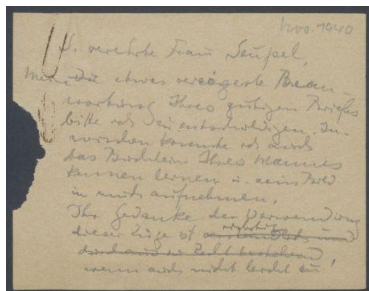 Nov. 1940
S. verehrte Frau Seupel,
Meine etwas verzögerte Bean-
wortung Ihres gütigen Briefes
bitte ich zu entschuldigen. In-
zwischen konnte ich auch
das Büchlein Ihres Mannes
kennen lernen u. sein Bild
in mich aufnehmen.
Ihr Gedanke der Verwendung
dieser Züge ist richtig
durchaus
wenn auch nicht leicht zu